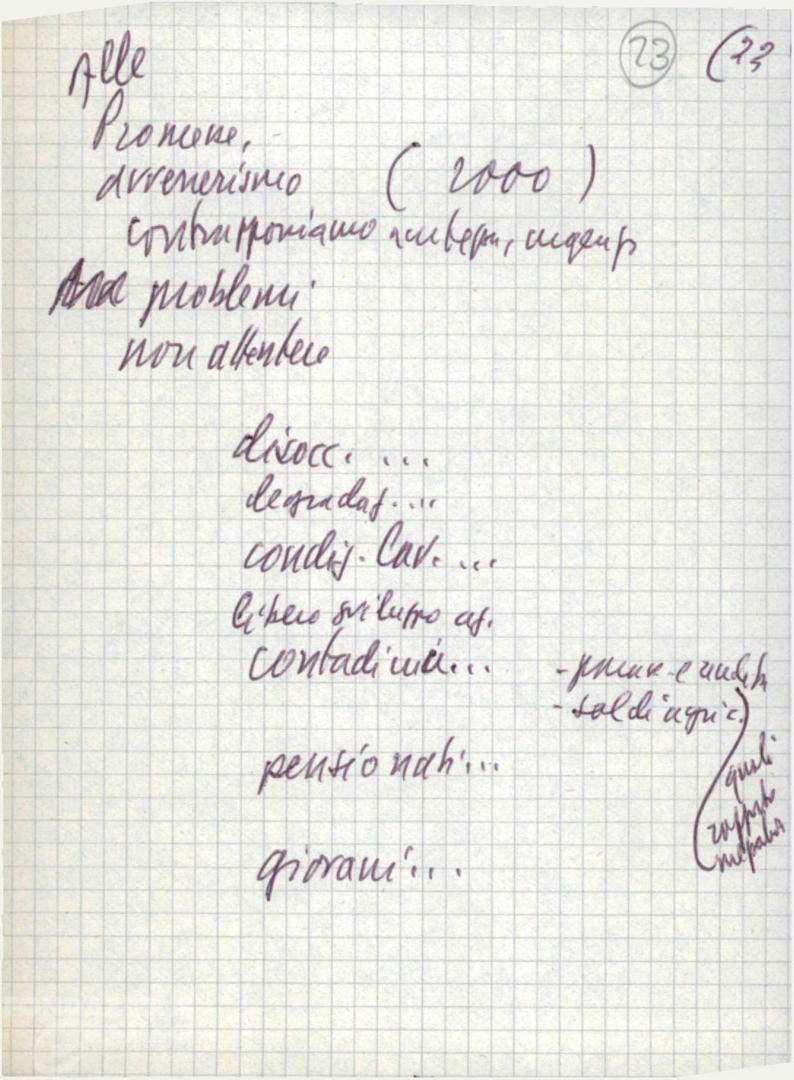 23 (22
Alle
Promesse,
avvenerismo (2000)
contrapponiamo urgenti
problemi
non attendere
disocc. ...
degradaz. ...
condiz. lav. ...
libero sviluppo az.
contadini...
-
- soldi agric.
quali
pensionati...
giovani...